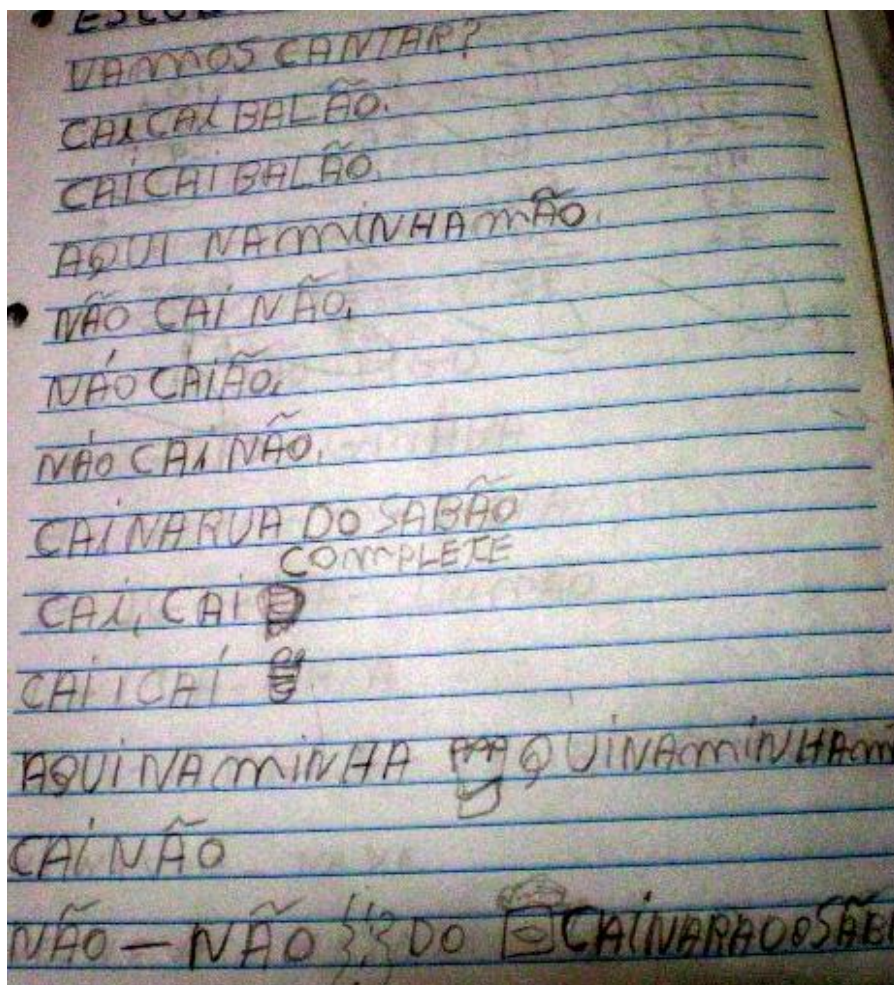 VAMOS CANTAR?
CAI CAI BALÃO.
CAI CAI BALÃO.
AQUI NA MINHA MÃO.
NÃO CAI NÃO.
NÃO CAIÃO.
NÃO CAI NÃO.
CAI NA RUA DO SABÃO
COMPLETE
CAI, CAI
CAI I CAI
AQUI NA MINHA AQUI NA MINHA M
CAI NÃO
NÃO — NÃO DO CAI NA RADOSÃB